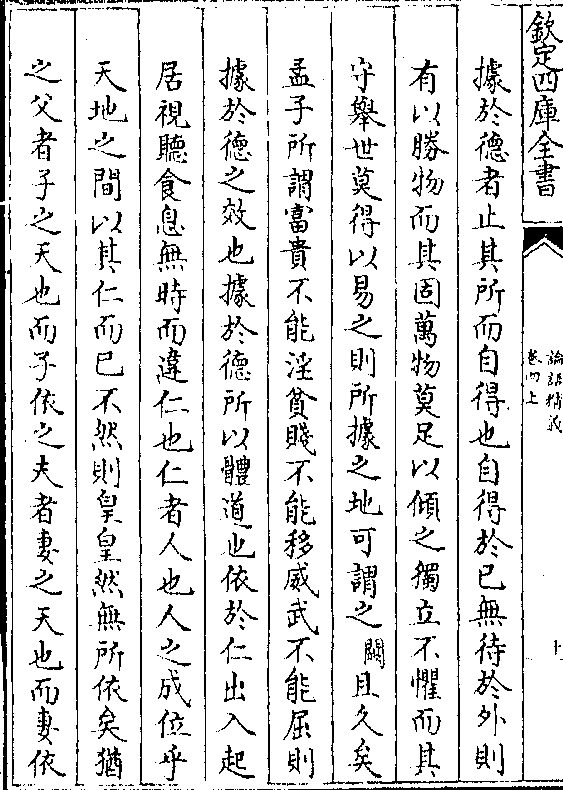 欽定四庫全書
論語精義
卷四上
據於德者止其所而自得也自得於已無待於外則
有以勝物而其固萬物莫足以傾之獨立不懼而其
守舉世莫得以易之則所據之地可謂之闕且久矣
孟子所謂富貴不能淫貧賤不能移威武不能屈則
據於德之效也據於德所以體道也依於仁出入起
居視聽食息無時而違仁也仁者人也人之成位乎
天地之間以其仁而已不然則皇皇然無所依矣猶
之父者子之天也而子依之夫者妻之天也而妻依